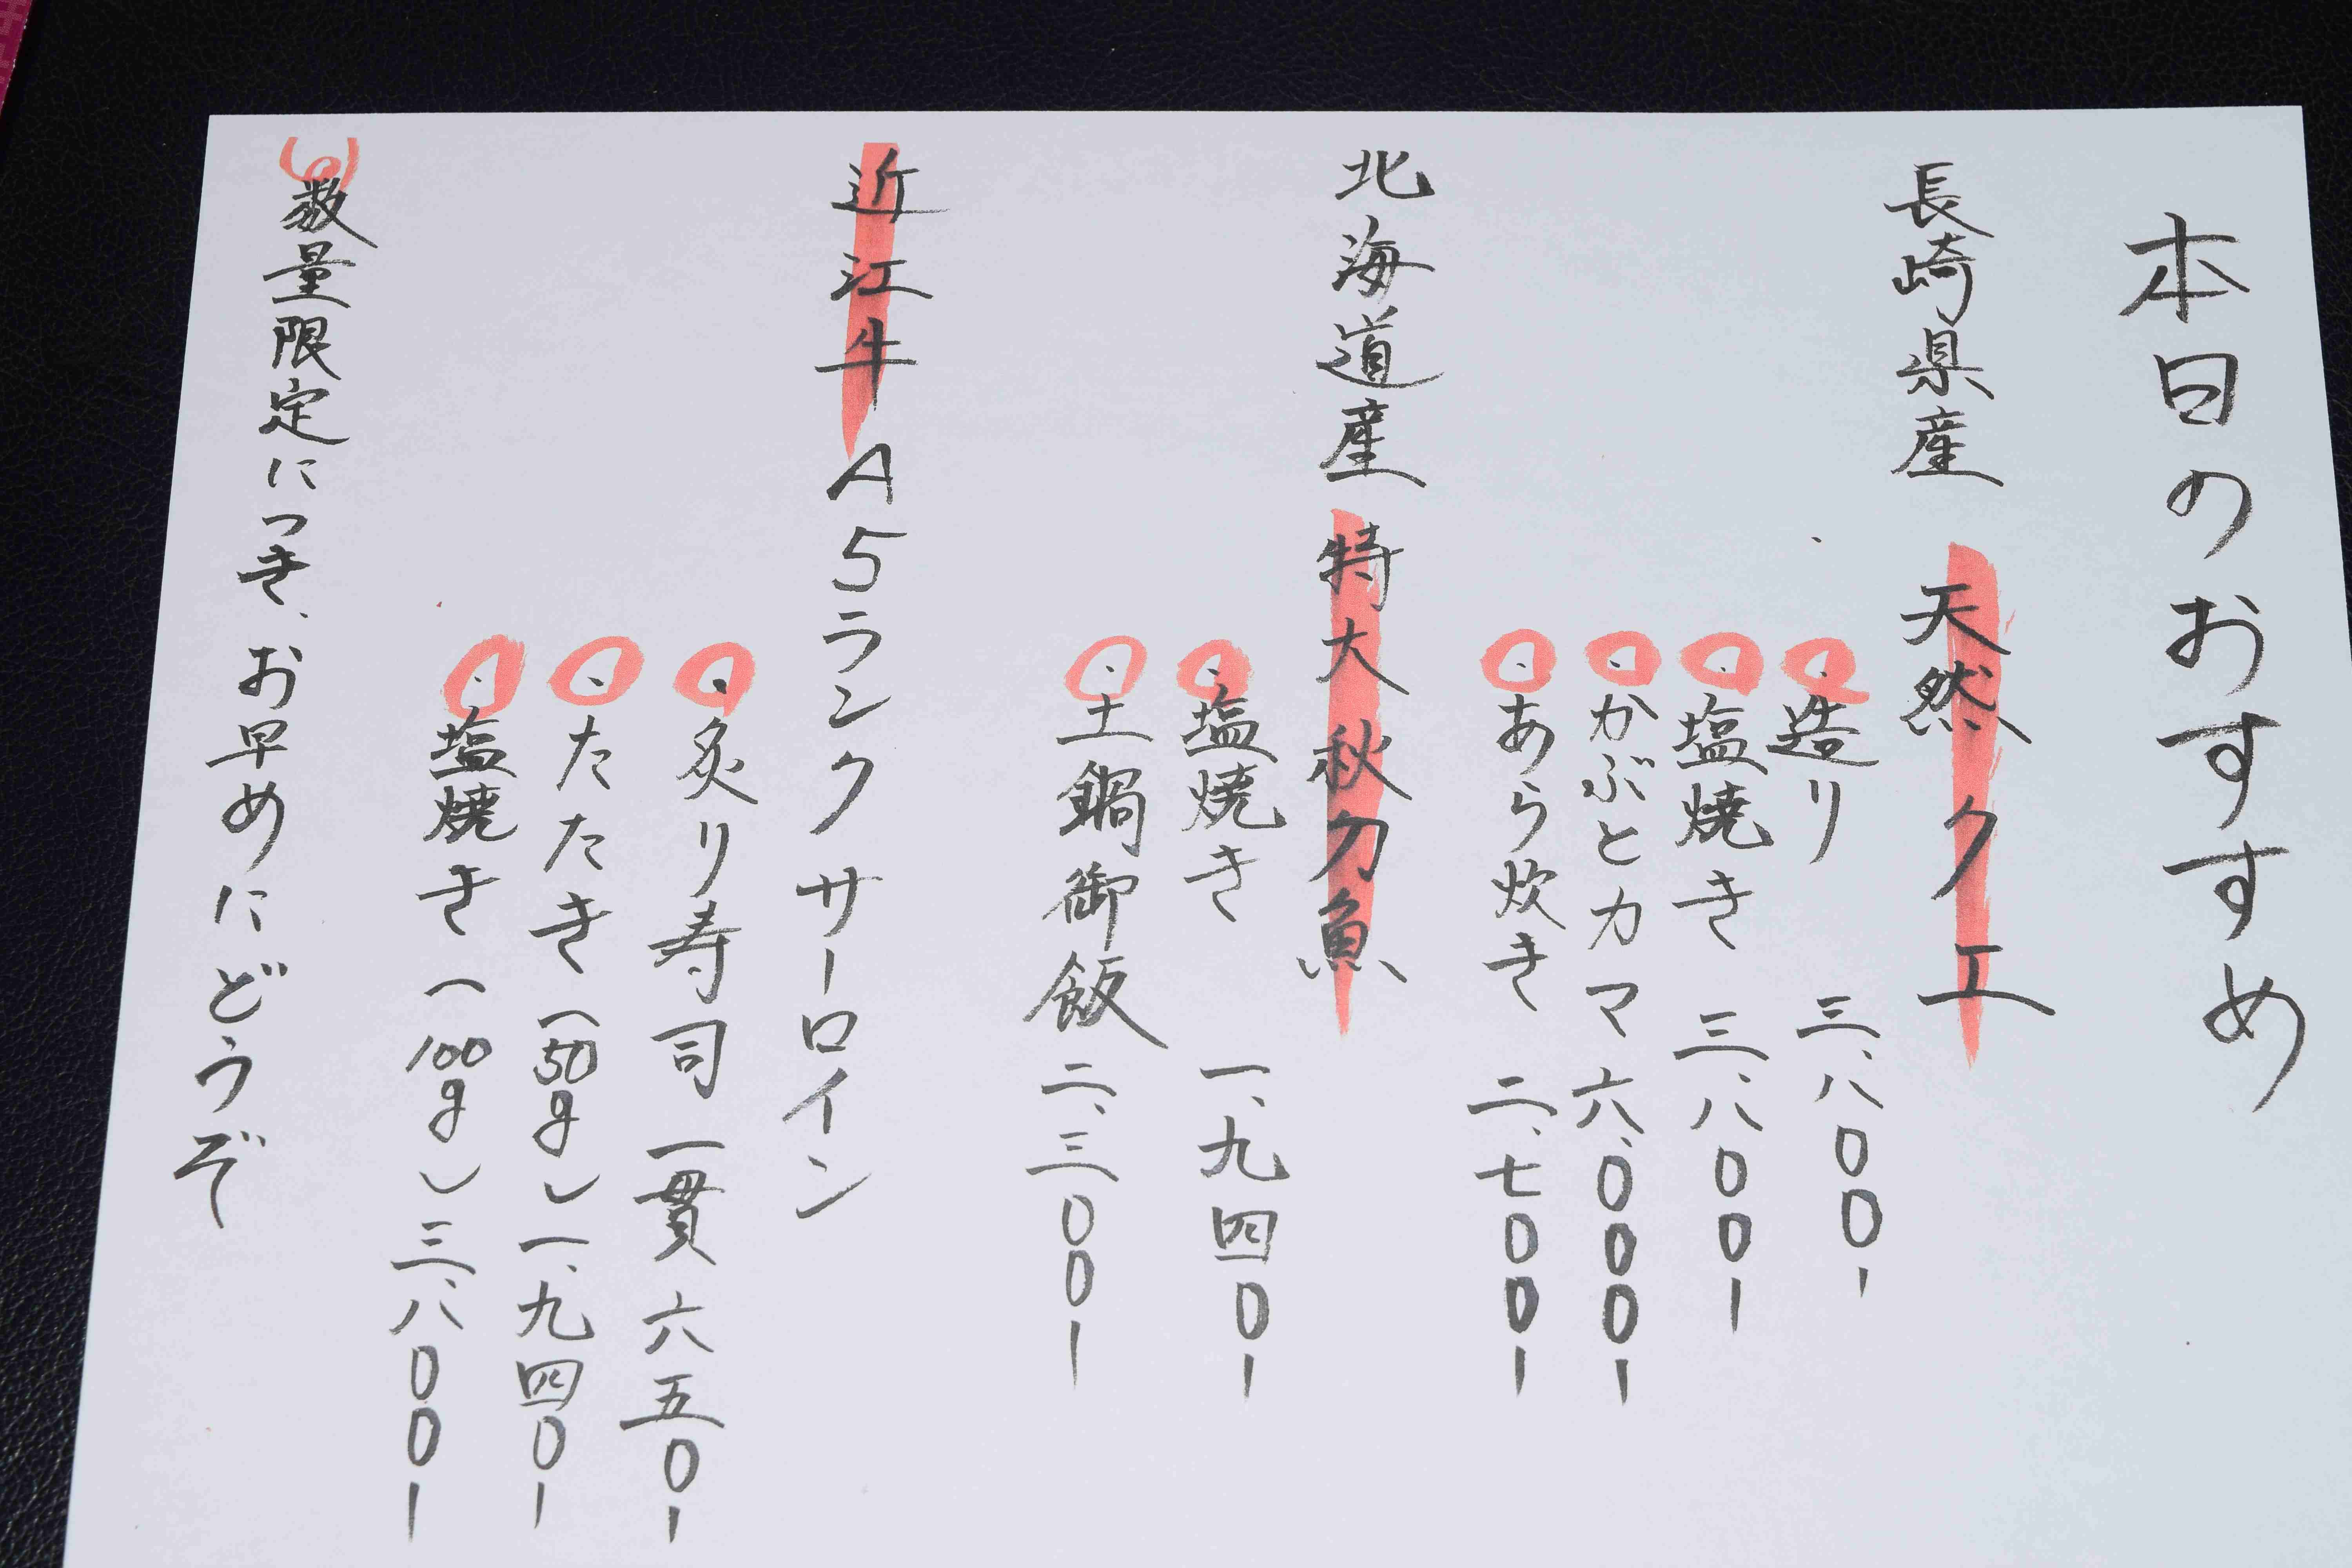 本日のおすすめ
長崎県産 天然クエ
・造り 三、八〇〇、
・塩焼き 三、八〇〇ー
・かぶとカマ 六、〇〇〇ー
・あら炊き 二、七〇〇ー
北海道産 特大秋刀魚
・塩焼き 一、九四〇ー
・土鍋御飯 二、三〇〇ー
近江牛A5ランクサーロイン
・炙り寿司 一貫 六五〇ー
・たたき(50g) 一、九四〇ー
・塩焼き(100g) 三、八〇〇ー
数量限定につき、お早めにどうぞ